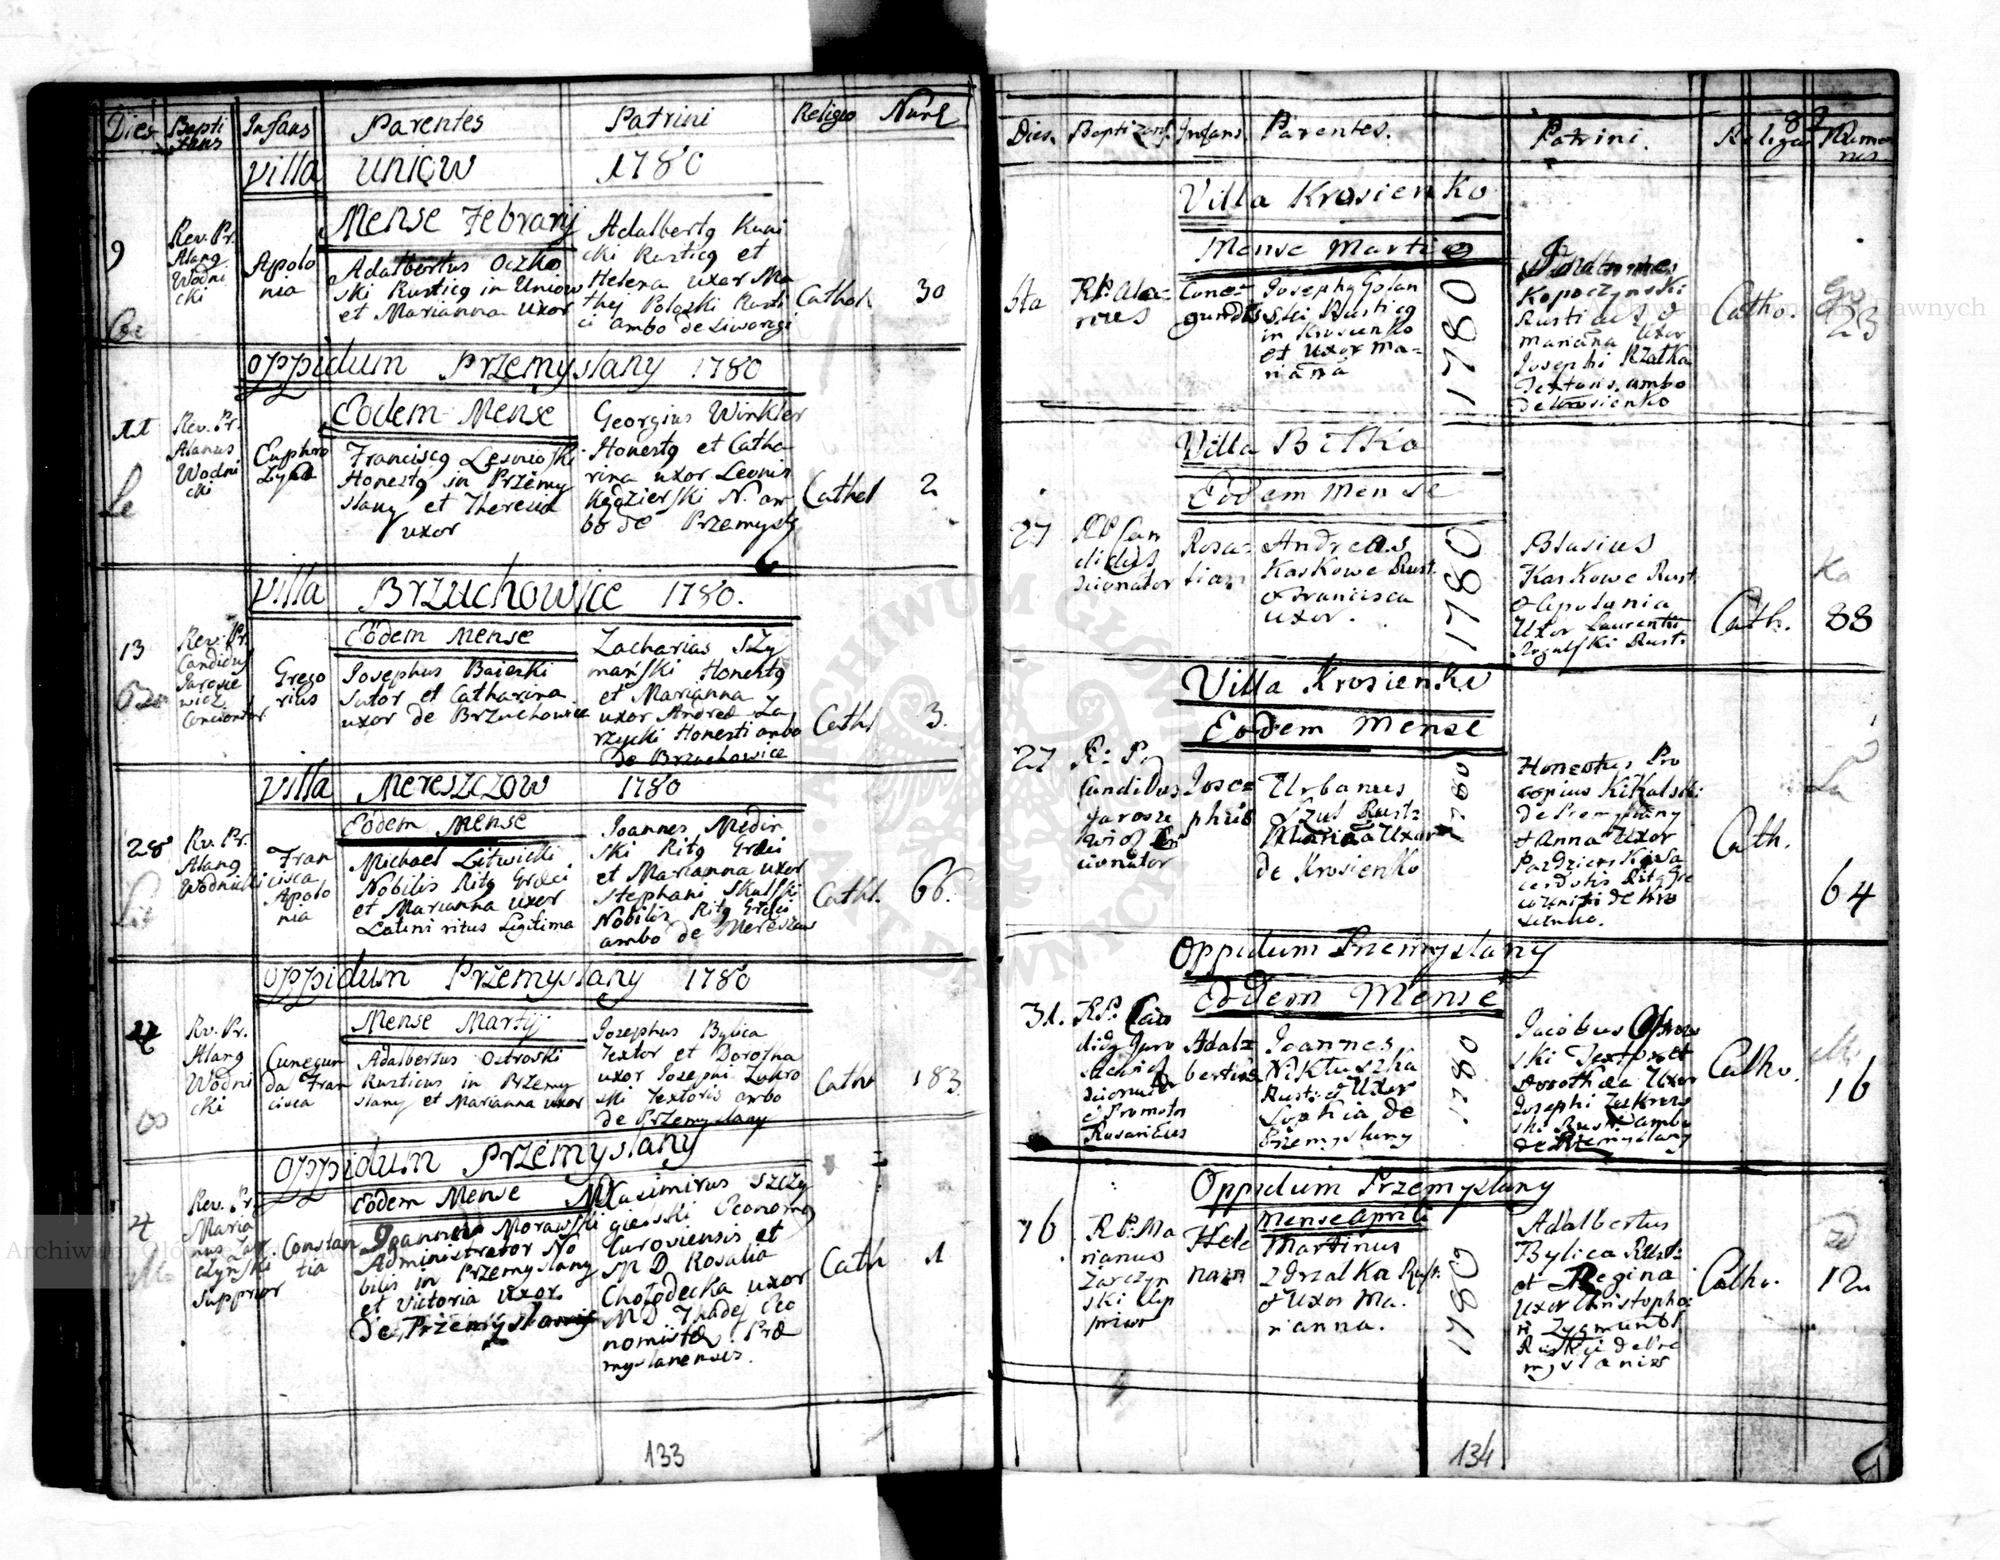 Dies Bapti Infans Parentes Patrini Religio Num
zans
Villa Uniow 1780
Mense Februarij
9
Rev. Pr.
Alang
Wodni
cki
Apolo
nia
Adalbertus Oczko
ski Rusticg in Uniow
et Marianna uxor
Adalbertg Kuni
cki Rusticg et
Helena uxor Ma
thej Polazki Rusti
ci ambo de
Cathol
30
Oppidum Przemyslany 1780
Eodem Mense
11
Rev. Pr.
Alanus
Wodni
cki
Euphro
zyna
Franciscg
Honestg in Przemy
slany et Theresia
uxor
Georgius Winkler
Honestg et Catha
rina uxor Leonis
Kędzierski N. am
bo de Przemyslg
Cathol
2
Villa Brzuchowice 1780.
Eodem Mense
13
Rev. Pr.
Candidus
Jarosie
wicz
Concionator
Grego
rius
Josephus Baierki
Sutor et Catharina
uxor de Brzuchowice
Zacharias Szy
mański Honestg
et Marianna
uxor Andreæ Za
rzycki Honesti ambo
de Brzuchowice
Cathl
3.
Villa Mereszczow 1780
Eodem Mense
28
Rv. Pr.
Alang
Wodnicki
Fran
cisca
Apolo
nia
Michael Litwicki
Nobilis Ritg Græci
et Marianna uxor
Latini ritus Legitima
Joannes Medir
ski Ritg Græci
et Marianna uxor
Stephani Skulski
Nobilis Ritg Græci
ambo de Mereszczow
Cathl.
66.
Oppidum Przemyslany 1780
Mense Martij
4
Rv. Pr.
Alang
Wodni
cki
Cunegun
da Fran
cisca
Adalbertus Ostroski
Rusticus in Przemy
slany et Marianna uxor
Josephus Bylica
Textor et Dorotha
uxor Josephi Zukro
ski Textoris ambo
de Przemyslany
Cathol
183.
Oppidum Przemyslany
Eodem Mense
4
Rev. Pr.
Maria
nus Zar
czynski
Supprior
Constan
tia
Joannes Morawski
Administrator No
bilis in Przemyslany
et Victoria uxor
de Przemyslany
M Casimirus Szczy
gielski Oeconomg
Curoviensis et
M D Rosalia
Chołodecka uxor
M D Thadej Oeo
nomistæ Præ
myslanensis.
Cath
1
133
Dies. Baptizans. Infans. Parentes. Patrini. Religio Nume
rus
82
Villa Krosienko
Mense Martio
Cune=
gundis
Josephg Golan
ski Rusticg
in Krosienko
et uxor Ma=
rianna
1780
Kopoczynski
Rusticus &
Mariana Uxor
Josephi Rzatka
Textoris. ambo
de Krosienko
Catho.
23
Villa Bitka
Eodem Mense
27
RP Can
didus
cionator
Rosa=
liam
Andreas
Kaskowe Rust.
& Francisca
uxor.
1780
Blasius
Kaskowe Rust.
& Apolonia
Uxor Laurentii
Rogulski Rusti.
Cath.
Ka
88
Villa Krosienko
Eodem Mense
27
R: P.
Candidus
Jarosze
wicz Con
cionator
Jose=
phus
Urbanus
Szul Rust:
Mariana Uxor
de Krosienko
1780
Honestus Pro
copius Kikalski
de Premyslany
& Anna Uxor
cerdotis Ritg Gre
co uniti de Kro
sienko.
Cath.
64
Oppidum Przemyslany
Eodem Mense
31.
RP. Can
didg Jaro
szewicz
cionator
& Promotor
Rosarius
Adal=
bertus
Joannes
Niktuszka
Rusti & Uxor
Sophia de
Przemyslany
1780
Jacobus Ostrow
ski Textor et
Dorothea Uxor
Josephi Zukrow
ski Rusti ambo
de Przemyslany
Catho.
16
Oppidum Przemyslany
Mense Aprili
16
R P. Ma
rianus
Zarczyn
ski Sup
prior
Hele
nam
Martinus
Zdrzalka Rust.
& Uxor Ma.
rianna.
1780
Adalbertus
Bylica Rust:
et Regina
Uxor Christopho
ri Zygmunt
Rustici de Pre
myslanis
Catho.
12
134
Archiwum Główne Akt Dawnych